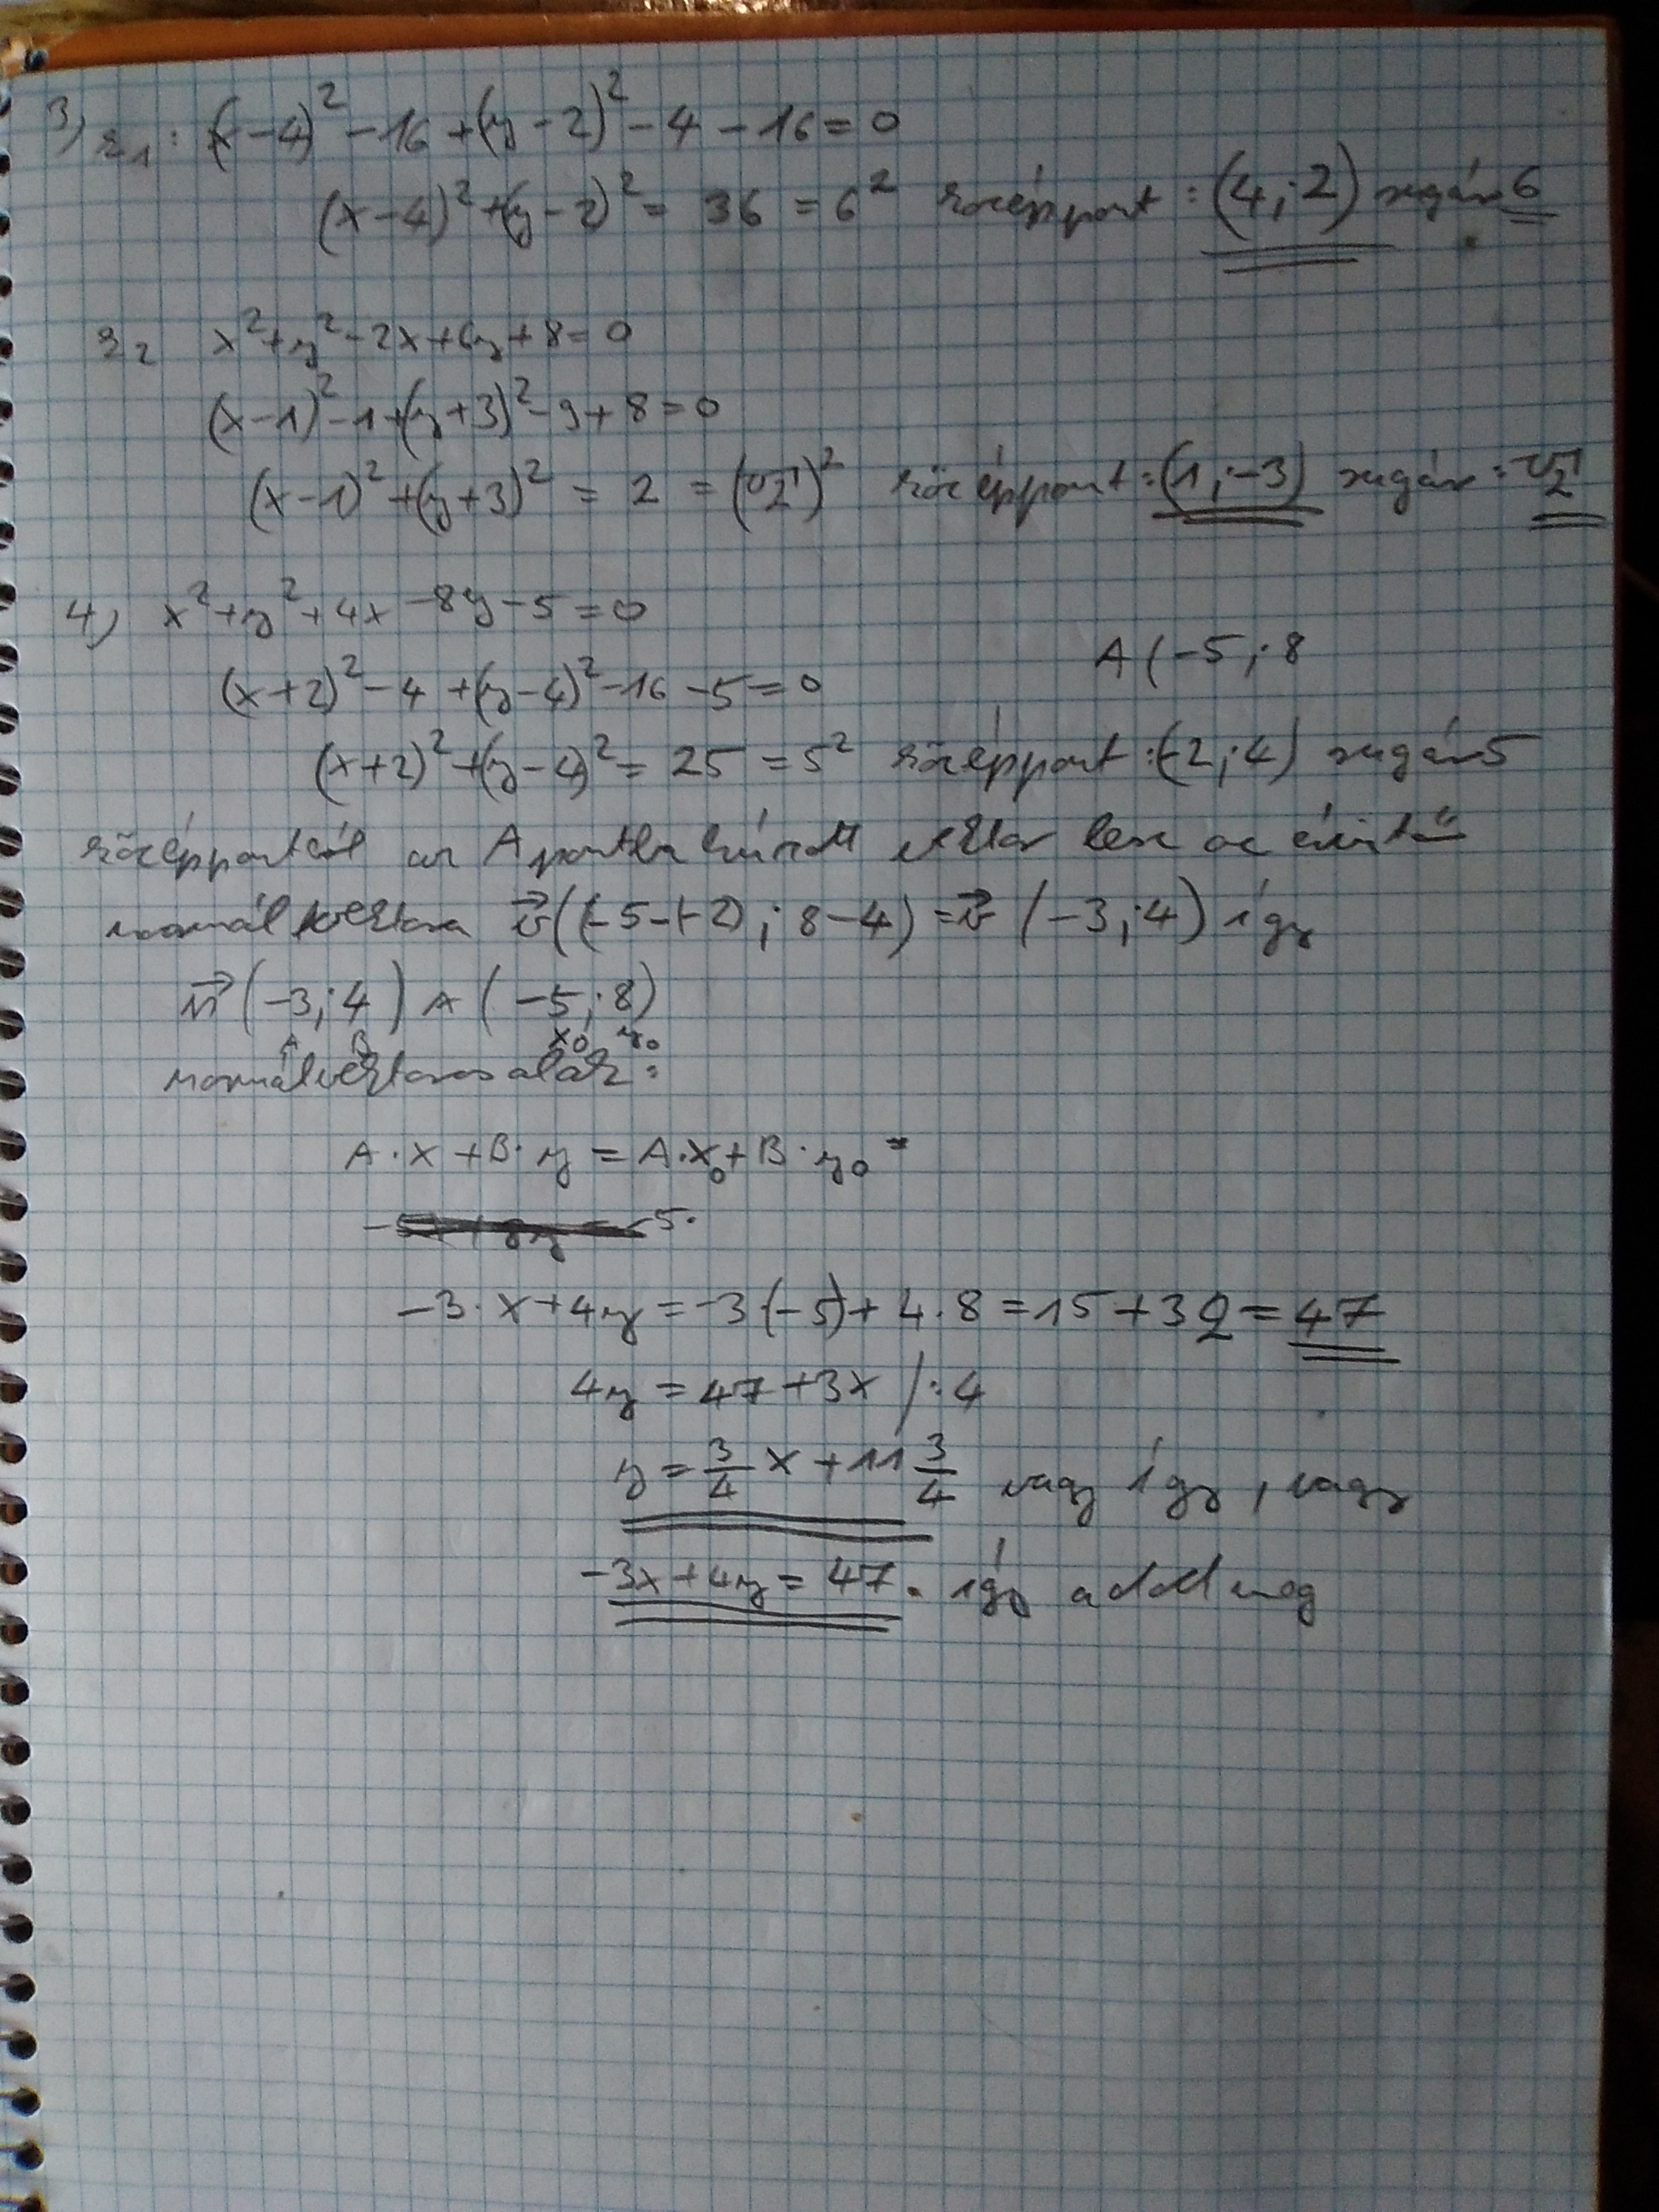 3) k₁: (x-4)² -16 +(y-2)² -4 -16 = 0
(x-4)² +(y-2)² = 36 = 6² középpont: (4;2) sugár 6
k₂ x²+y²-2x+6y+8=0
(x-1)²-1+(y+3)²-9+8=0
(x-1)²+(y+3)² = 2 = (√2)² középpont: (1;-3) sugár: √2
4) x²+y²+4x-8y-5=0
A(-5;8
(x+2)²-4+(y-4)²-16-5=0
(x+2)²+(y-4)² = 25 = 5² középpont: (-2;4) sugár 5
középpontból az A pontba húzott vektor lesz az érintő
normálvektora v⃗((-5-(-2); 8-4) = v⃗ (-3;4) így
n⃗(-3;4) A(-5;8)
A B x₀ y₀
normálvektoros alak:
A·x+B·y = A·x₀+B·y₀ =
-5·
-3·x+4y = -3(-5)+4·8 = 15+32 = 47
4y = 47+3x /:4
y = 3/4 x + 11 3/4 vagy így, vagy
-3x+4y = 47. így adod meg